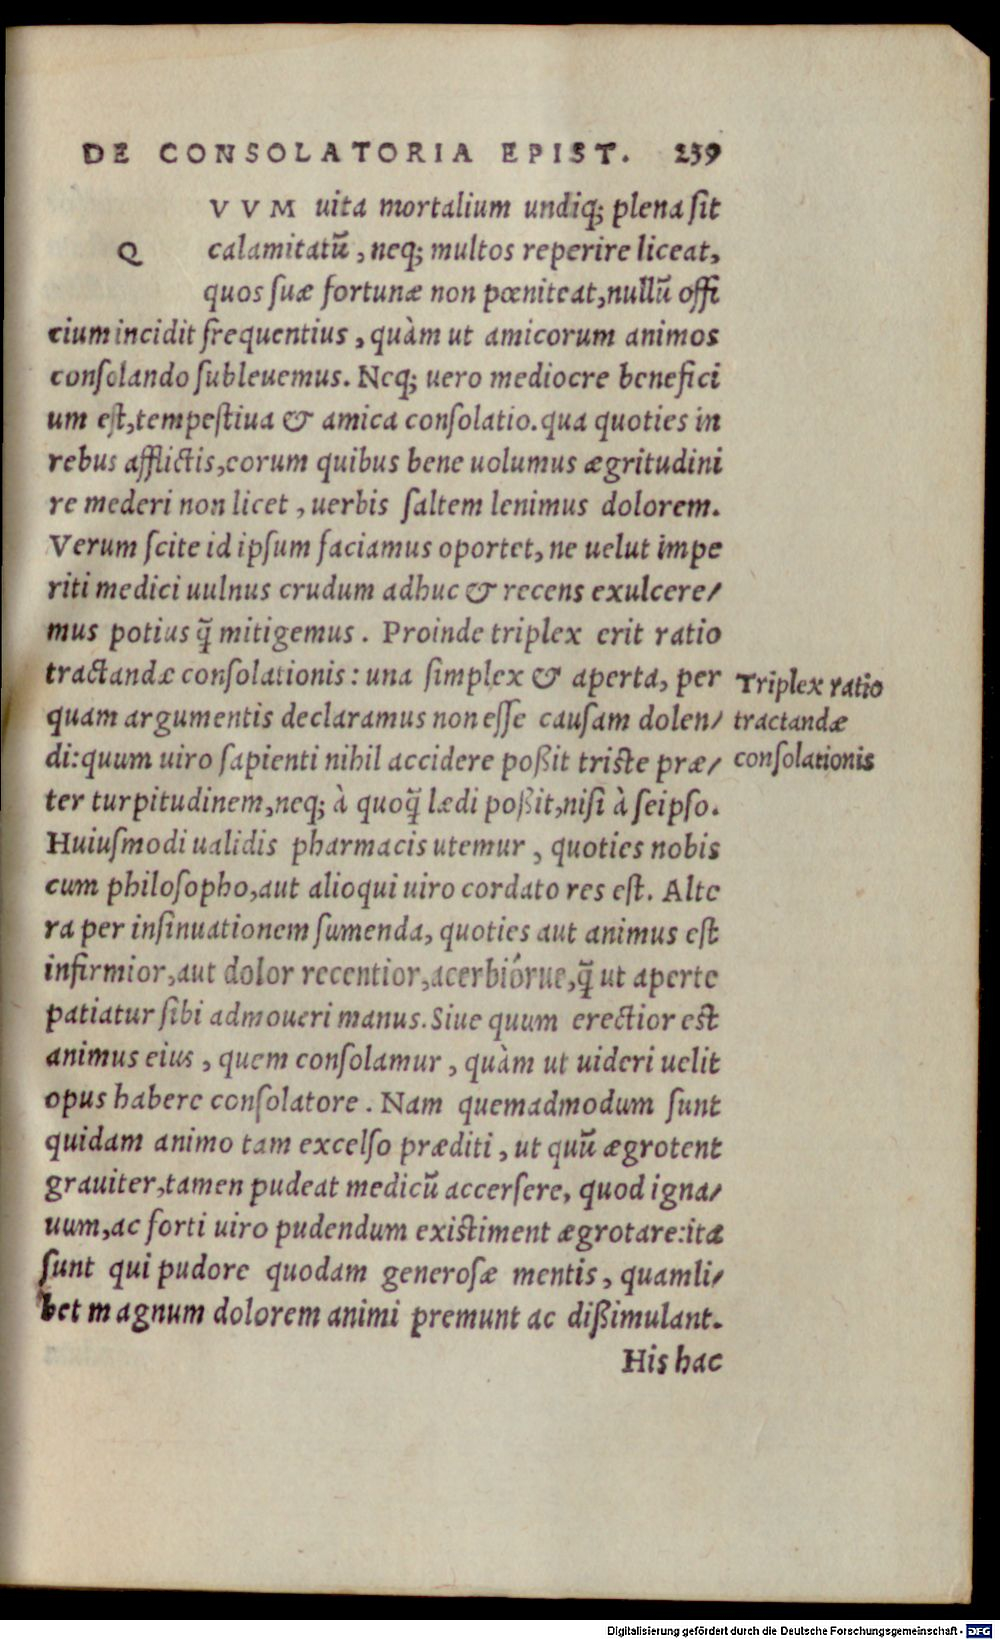 DE CONSOLATORIA EPIST. 239
Q VVM uita mortalium undiq; plena sit
calamitatū, neq; multos reperire liceat,
quos suæ fortunæ non pœniteat, nullū offi
cium incidit frequentius, quàm ut amicorum animos
consolando subleuemus. Neq; uero mediocre benefici
um est, tempestiua & amica consolatio. qua quoties in
rebus afflictis, eorum quibus bene uolumus ægritudini
re mederi non licet, uerbis saltem lenimus dolorem.
Verum scite id ipsum faciamus oportet, ne uelut impe
riti medici uulnus crudum adhuc & recens exulcere/
mus potius q̃ mitigemus. Proinde triplex erit ratio
tractandæ consolationis: una simplex & aperta, per
quam argumentis declaramus non esse causam dolen/
di: quum uiro sapienti nihil accidere poßit triste præ/
ter turpitudinem, neq; à quoq̃ lædi poßit, nisi à seipso.
Huiusmodi ualidis pharmacis utemur, quoties nobis
cum philosopho, aut alioqui uiro cordato res est. Alte
ra per insinuationem sumenda, quoties aut animus est
infirmior, aut dolor recentior, acerbiórue, q̃ ut aperte
patiatur sibi admoueri manus. Siue quum erectior est
animus eius, quem consolamur, quàm ut uideri uelit
opus habere consolatore. Nam quemadmodum sunt
quidam animo tam excelso præditi, ut quū ægrotent
grauiter, tamen pudeat medicū accersere, quod igna/
uum, ac forti uiro pudendum existiment ægrotare: ita
sunt qui pudore quodam generosæ mentis, quamli/
bet magnum dolorem animi premunt ac dißimulant.
His hac
Triplex ratio
tractandæ
consolationis
Digitalisierung gefördert durch die Deutsche Forschungsgemeinschaft - DFG